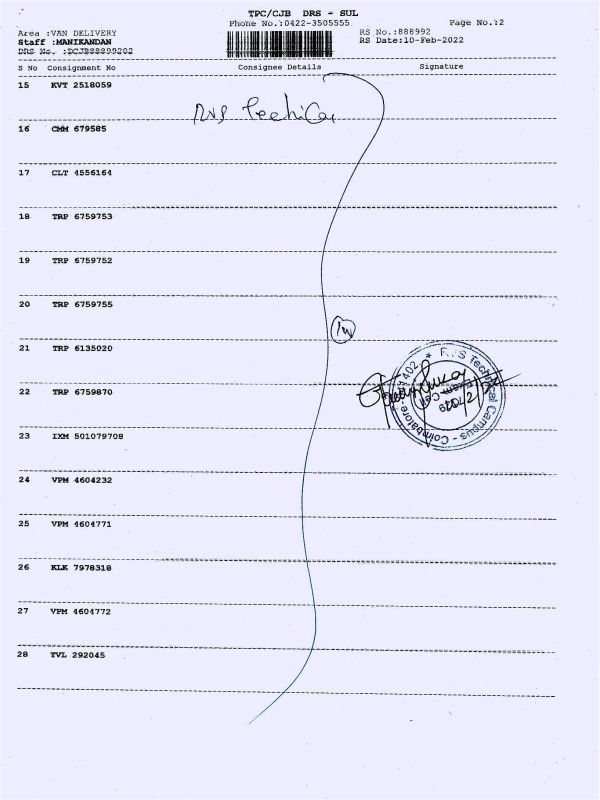 TPC/CJB DRS - SUL
Phone No.:0422-3505555
Page No.:2
Area :VAN DELIVERY
RS No.:888992
Staff :MANIKANDAN
RS Date:10-Feb-2022
DRS No. :DCJB88899202
S No Consignment No Consignee Details Signature
15 KVT 2518059
16 CMM 679585
17 CLT 4556164
18 TRP 6759753
19 TRP 6759752
20 TRP 6759755
21 TRP 6135020
22 TRP 6759870
23 IXM 501079708
24 VPM 4604232
25 VPM 4604771
26 KLK 7978318
27 VPM 4604772
28 TVL 292045
RVS Technical Campus - Coimbatore
Exam Cell